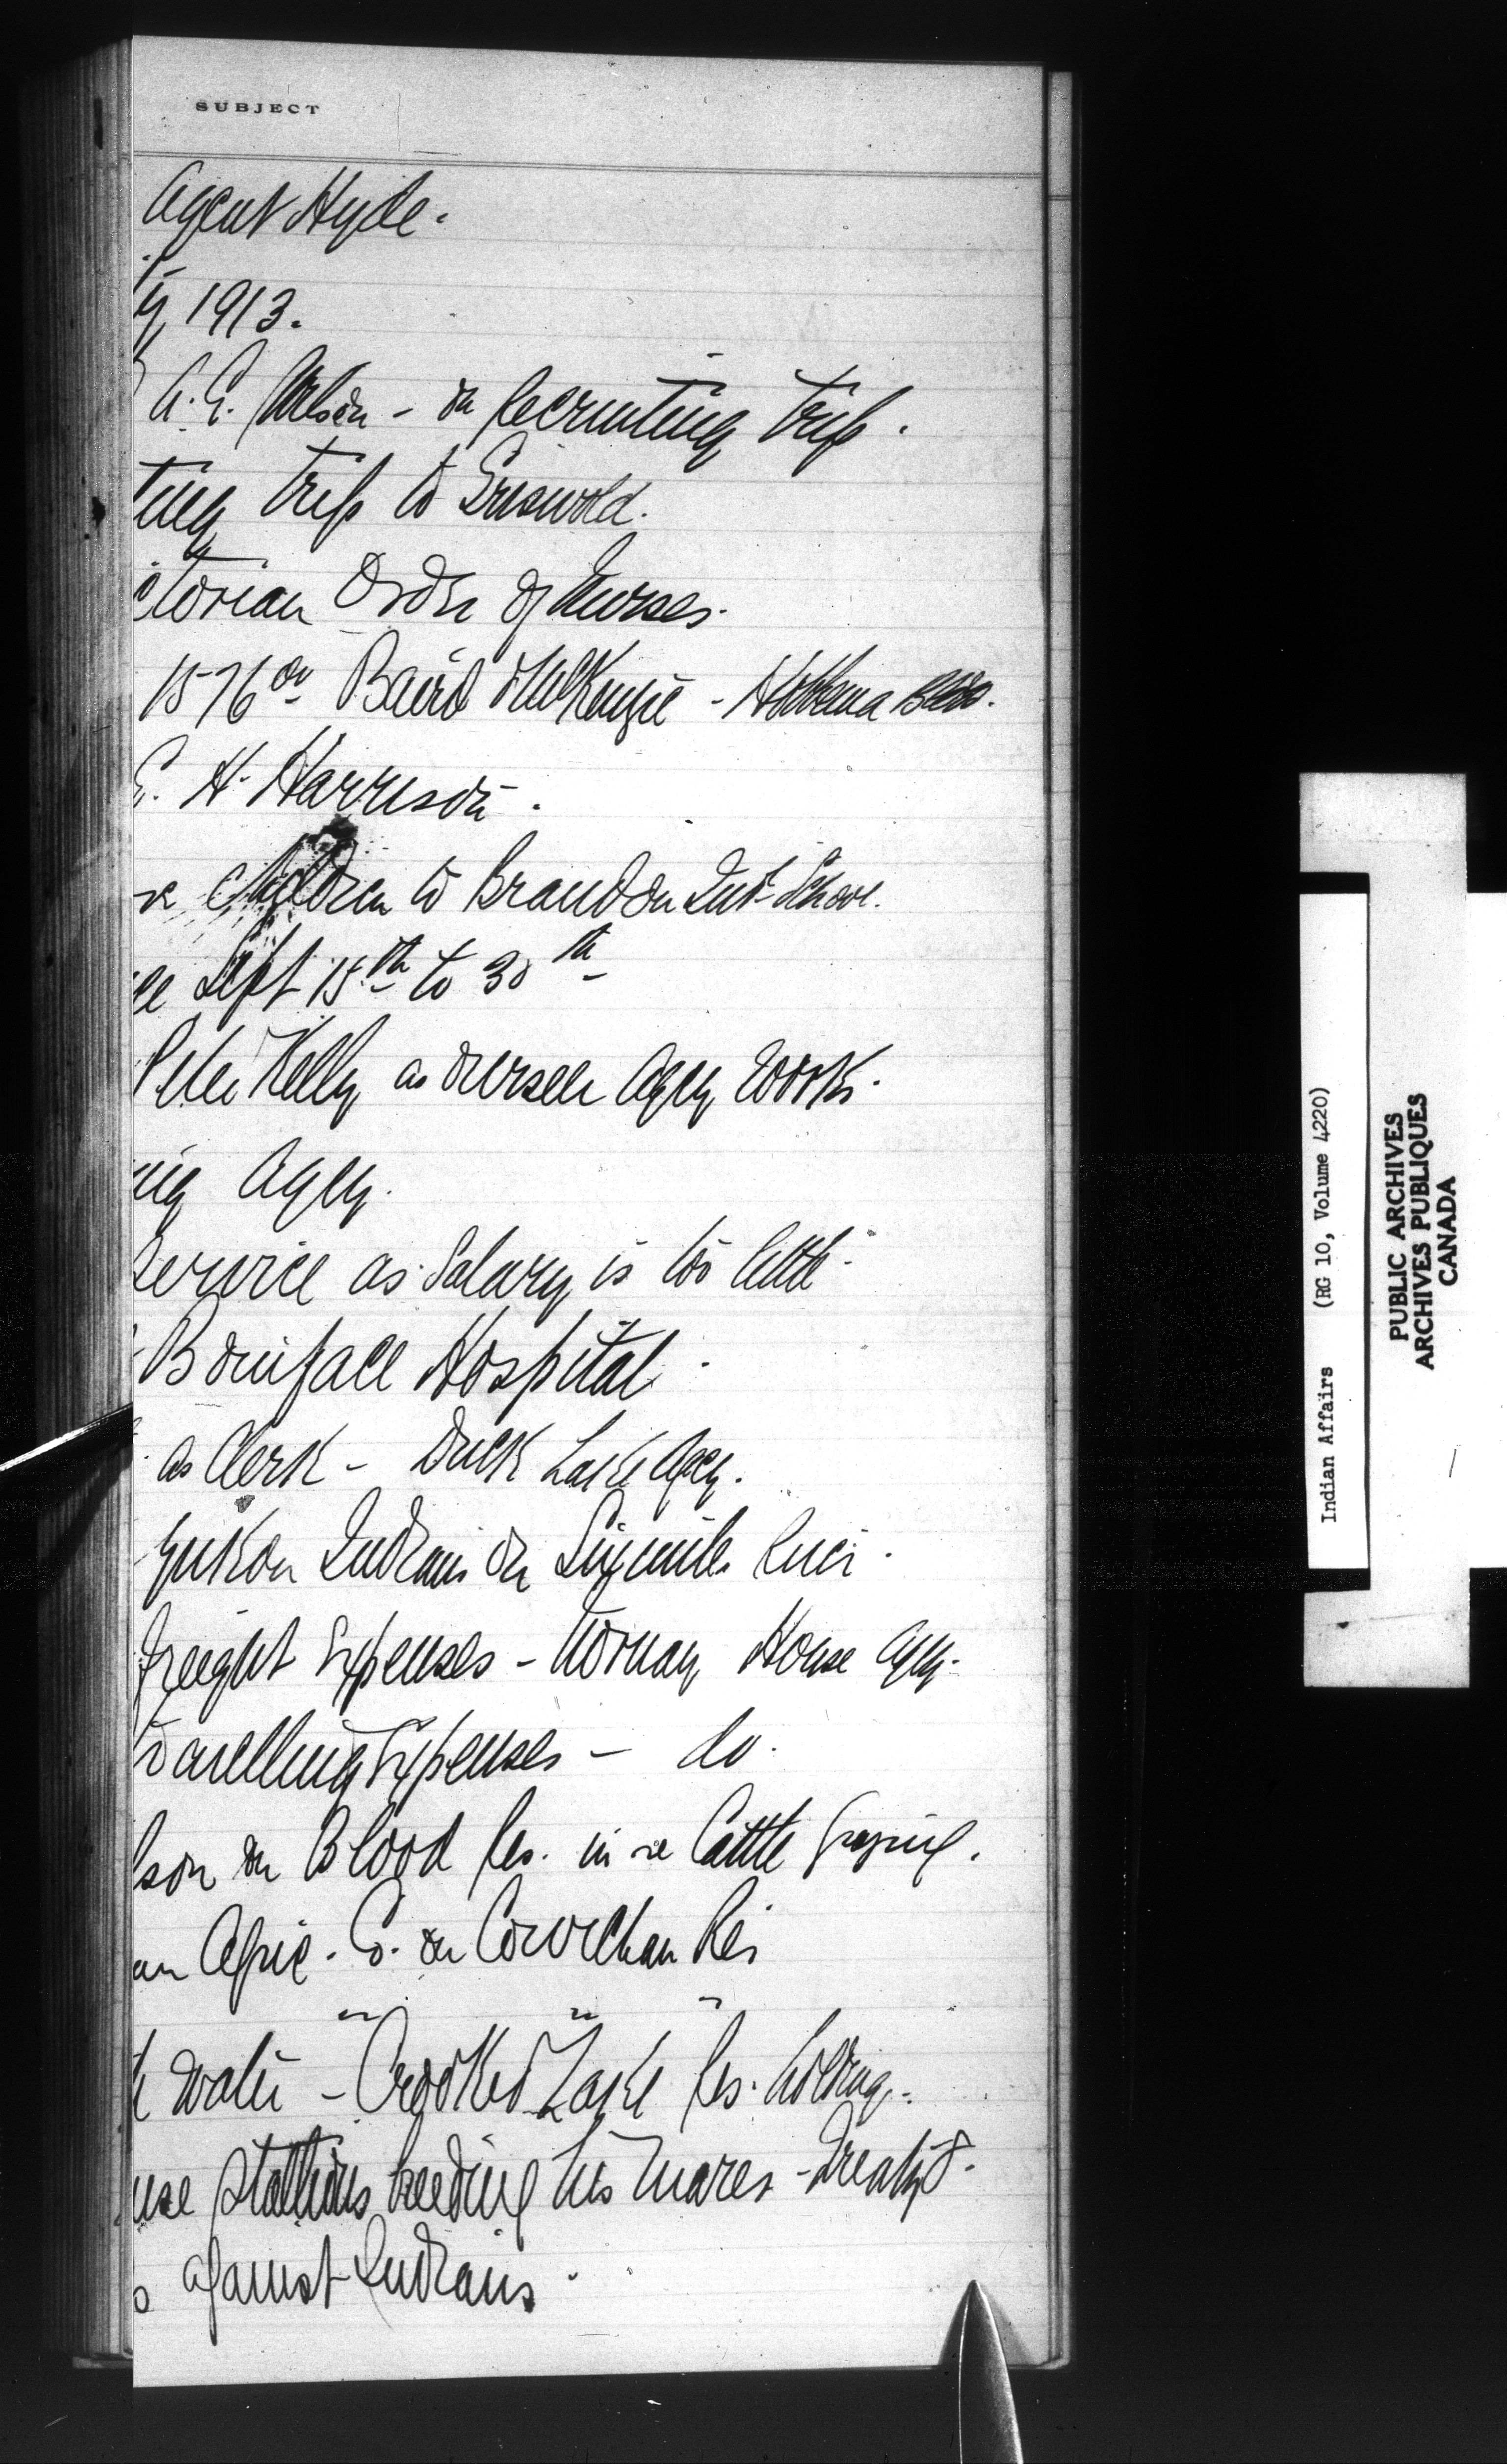 SUBJECT
Agent Hyde.
1913.
A. E. Wilson - on recruiting trip.
ting trip to Griswold.
ctorian Order of Nurses.
1576 00 Baird McKenzie - Hobbema
E. H. Harrison.
re children to Brandon Ind. School.
Sept 15th to 30th
Peter Kelly as overseer Agcy works.
Agcy.
service as salary is too little.
Boniface Hospital.
as Clerk - Duck Lake Agcy.
Yukon Indians on Sixmile
freight Expenses - Norway House Agcy.
travelling Expenses - do.
lson on Blood Res. in re Cattle Grazing.
an Agric. S. on Cowichan Res
water - Crooked Lake Res. holding.
use stallions breeding his mares -
against Indians.
Indian Affairs (RG 10, Volume 4220)
PUBLIC ARCHIVES
ARCHIVES PUBLIQUES
CANADA